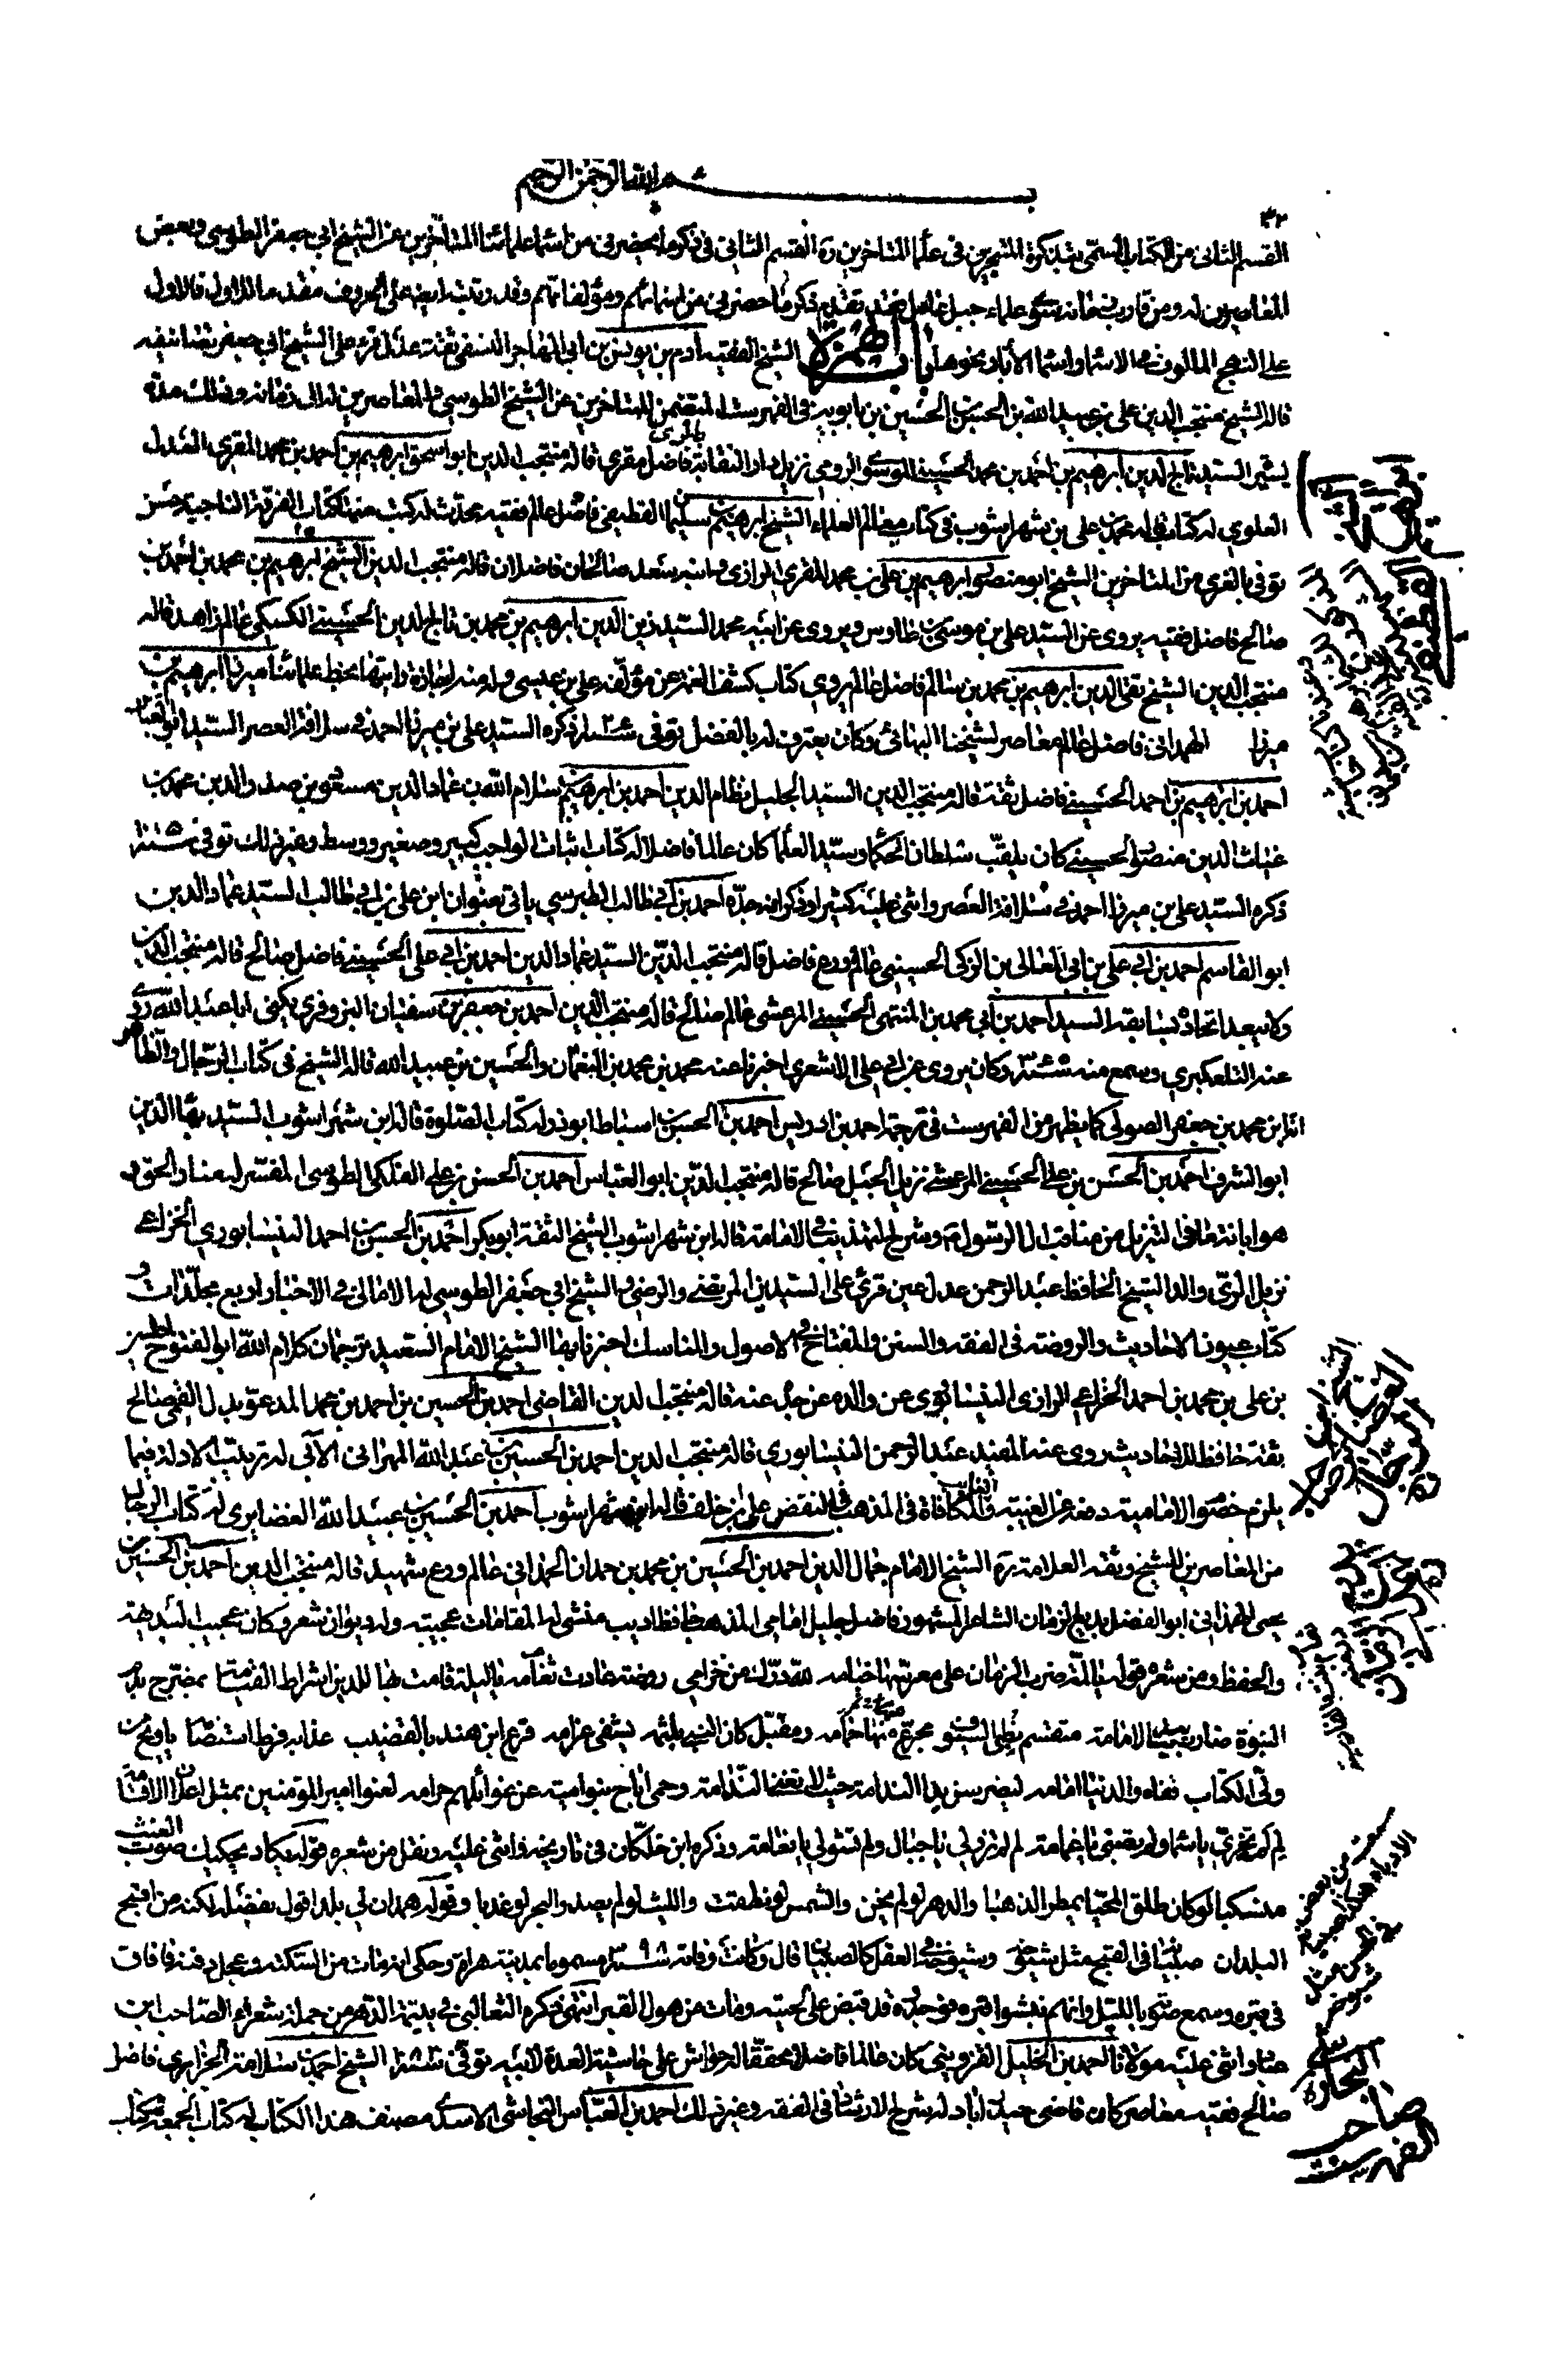 بسم الله الرحمن الرحيم
٣٢
القسم الثاني من الكتاب المسمى بتذكرة المتبحرين في علماء المتاخرين ره القسم الثاني في ذكر ما يحضرني من اسماء علمائنا المتاخرين عن الشيخ ابي جعفر الطوسي وبعض
المعاصرين له ومن قارب زمانه سوى علماء جبل عامل فقد تقدم ذكر ما حضرني من اسمائهم ومؤلفاتهم وقد رتبته ايضا على الحروف مقدما للاول فالاول
على النهج المالوف في الاسماء واسماء الآباء ونحوها باب الهمزة الشيخ الفقيه ادم بن يونس بن ابي المهاجر النسفي ثقة عدل قرء على الشيخ ابي جعفر تصانيفه
قاله الشيخ منتجب الدين علي بن عبيد الله بن الحسن بن الحسين بن بابويه في الفهرست المتضمن للمتاخرين عن الشيخ الطوسي والمعاصرين له الى زمانه وذلك مدة
السيد تاج الدين ابراهيم بن احمد بن محمد الحسيني الموسوي الرومي نزيل دار النقابة بالري فاضل مقري قاله منتجب الدين ابو اسحق ابراهيم بن احمد بن محمد المقري العدل
العلوي له كتاب قاله محمد بن علي بن شهراشوب في كتاب معالم العلماء الشيخ ابرهيم بن سليمان القطيفي فاضل عالم فقيه محدث له كتب منها كتاب الفرقة الناجية حسن
توفي بالغري من المتاخرين الشيخ ابو منصور ابرهيم بن علي بن محمد المقري الرازي وابنه سعد صالحان فاضلان قاله منتجب الدين الشيخ ابرهيم بن محمد بن احمد بن
صالح فاضل فقيه يروي عن السيد علي بن موسى بن طاوس ويروي عن ابنه محمد السيد زين الدين ابرهيم بن محمد بن تاج الدين الحسيني الكسكي عالم زاهد قاله
منتجب الدين الشيخ تقي الدين ابرهيم بن محمد بن سالم فاضل عالم يروي كتاب كشف الغمة عن مؤلفه علي بن عيسى وله منه اجازة رايتها بخط علمائنا ميرزا ابرهيم بن
ميرزا الهمداني فاضل عالم معاصر لشيخنا البهائي وكان يعترف له بالفضل توفي سنة ذكره السيد علي بن ميرزا احمد في سلافة العصر السيد ابو العباس
احمد بن ابرهيم بن احمد الحسيني فاضل ثقة قاله منتجب الدين السيد الجليل نظام الدين احمد بن ابرهيم بن سلام الله بن عماد الدين مسعود بن صدر الدين محمد بن
غياث الدين منصور الحسيني كان يلقب سلطان الحكماء وسيد العلماء كان عالما فاضلا له كتاب اثبات الواجب كبير وصغير ووسط وغير ذلك توفي سنة
ذكره السيد علي بن ميرزا احمد في سلافة العصر واثنى عليه كثيرا وذكر انه جده احمد بن ابي طالب الطبرسي ياتي بعنوان ابن علي بن ابي طالب السيد عماد الدين
ابو القاسم احمد بن ابي علي بن ابي المعالي بن الزكي الحسيني عالم ورع فاضل قاله منتجب الدين السيد عماد الدين احمد بن ابي علي الحسيني فاضل صالح قاله منتجب الدين
وكانه بعد اتحاده بسابقه السيد احمد بن ابي محمد بن المنتهى الحسيني المرعشي عالم صالح قاله منتجب الدين احمد بن جعفر بن سفيان البزوفري يكنى ابا عبد الله روى
عنه التلعكبري وسمع منه سنة وكان يروي عن ابي علي الاشعري اخبرنا عنه محمد بن محمد بن النعمان والحسين بن عبيد الله قاله الشيخ في كتاب الرجال والظاهر
انه ابن محمد بن جعفر الصولي كما يظهر من الفهرست في ترجمة احمد بن ادريس احمد بن الحسن اسباط ابو ذر له كتاب الصلوة قاله ابن شهراشوب السيد بهاء الدين
ابو الشرف احمد بن الحسن بن علي الحسيني المرعشي نزيل الجبل صالح قاله منتجب الدين ابو العباس احمد بن الحسن بن علي الفلكي الطوسي المفسر له منار الحق و
هو ابانة ما في التنزيل من مناقب ال الرسول وشرح التهذيب في الامامة قاله ابن شهراشوب الشيخ الثقة ابو بكر احمد بن الحسين بن احمد النيسابوري الخزاعي
نزيل الري والد الشيخ الحافظ عبد الرحمن عدل عين قرئ على السيدين المرتضى والرضي والشيخ ابي جعفر الطوسي له الامالي في الاخبار اربع مجلدات و
كتاب عيون الاحاديث والروضة في الفقه والسنن والمفتاح في الاصول والمناسك اخبرنا بها الشيخ الامام السعيد ترجمان كلام الله ابو الفتوح الحسين
بن علي بن محمد بن احمد الخزاعي الرازي النيسابوري عن والده عن جده عنه قاله منتجب الدين القاضي احمد بن الحسين بن احمد بن محمد المدعو بدل القمي صالح
ثقة حافظ للاحاديث روى عنه المفيد عبد الرحمن النيسابوري قاله منتجب الدين احمد بن الحسين بن عبد الله المهراني الآبي له ترتيب الادلة فيما
يلزم خصوم الامامية دفعه عن الغيبة والغائب والمكافاة في المذهب في النقض على بن خلف قاله ابن شهراشوب احمد بن الحسين بن عبيد الله الغضايري له كتاب الرجال
من المعاصرين للشيخ وثقه العلامة ره الشيخ الامام جمال الدين احمد بن الحسين بن محمد بن حمدان الحمداني عالم ورع شهيد قاله منتجب الدين احمد بن الحسين بن
يحيى الهمذاني ابو الفضل بديع الزمان الشاعر المشهور فاضل جليل امامي المذهب حافظ اديب منشي له المقامات عجيبة وله ديوان شعر وكان عجيب البديهة
والحفظ ومن شعره قوله يا لمة ضرب الزمان على معرسها خيامه لله درك من خزامى روضة عادت ثغامه يا ليلة قامت بها للدين اشراط القيامة بمضرج بدم
النبوة ضارب بيد الامامة متقسم بظبى السيوف مجرع منها حمامه ومقبل كان النبي بلثمه يشفي غرامه قرع ابن هند بالقضيب عذابه فرط استضامه يا ويح من
ولى الكتاب قفاه والدنيا امامه ليضرسن يد الندامة حيث لا تغني الندامة وحمى اباح بنو امية عن غوائلهم حرامه لعنوا امير المؤمنين بمثل اعلان الاقامة
لم لم تخري يا سماء ولم تصبي يا غمامة لم لم تزولي يا جبال ولم تشولي يا نعامة وذكره ابن خلكان في تاريخه واثنى عليه ونقل من شعره قوله يكاد يحكيك صوب الغيث
منسكبا لو كان طلق المحيا يمطر الذهبا والدهر لو لم يخن والشمس لو نطقت والليث لو لم يصد والبحر لو عذبا وقوله همدان لي بلد اقول بفضله لكنه من اقبح
البلدان صبيانه في القبح مثل شيوخه وشيوخه في العقل كالصبيان قال وكانت وفاته سنة مسموما بمدينة هراة وحكي انه مات من السكتة وعجل دفنه فافاق
في قبره وسمع صوته بالليل وانهم نبشوا قبره فوجدوه قد قبض على لحيته ومات من هول القبر انتهى ذكره الثعالبي في يتيمة الدهر من جملة شعراء الصاحب ابن
عباد واثنى عليه مولانا احمد بن الخليل القزويني كان عالما فاضلا محققا له حواش على حاشية العدة لابيه توفي سنة الشيخ احمد بن سلامة الجزايري فاضل
صالح فقيه معاصر كان قاضي حيدر اباد له شرح الارشاد في الفقه وغير ذلك احمد بن العباس النجاشي الاسدي مصنف هذا الكتاب له كتاب الجمعة وكتاب
النجاشي
صاحب
الفهرست